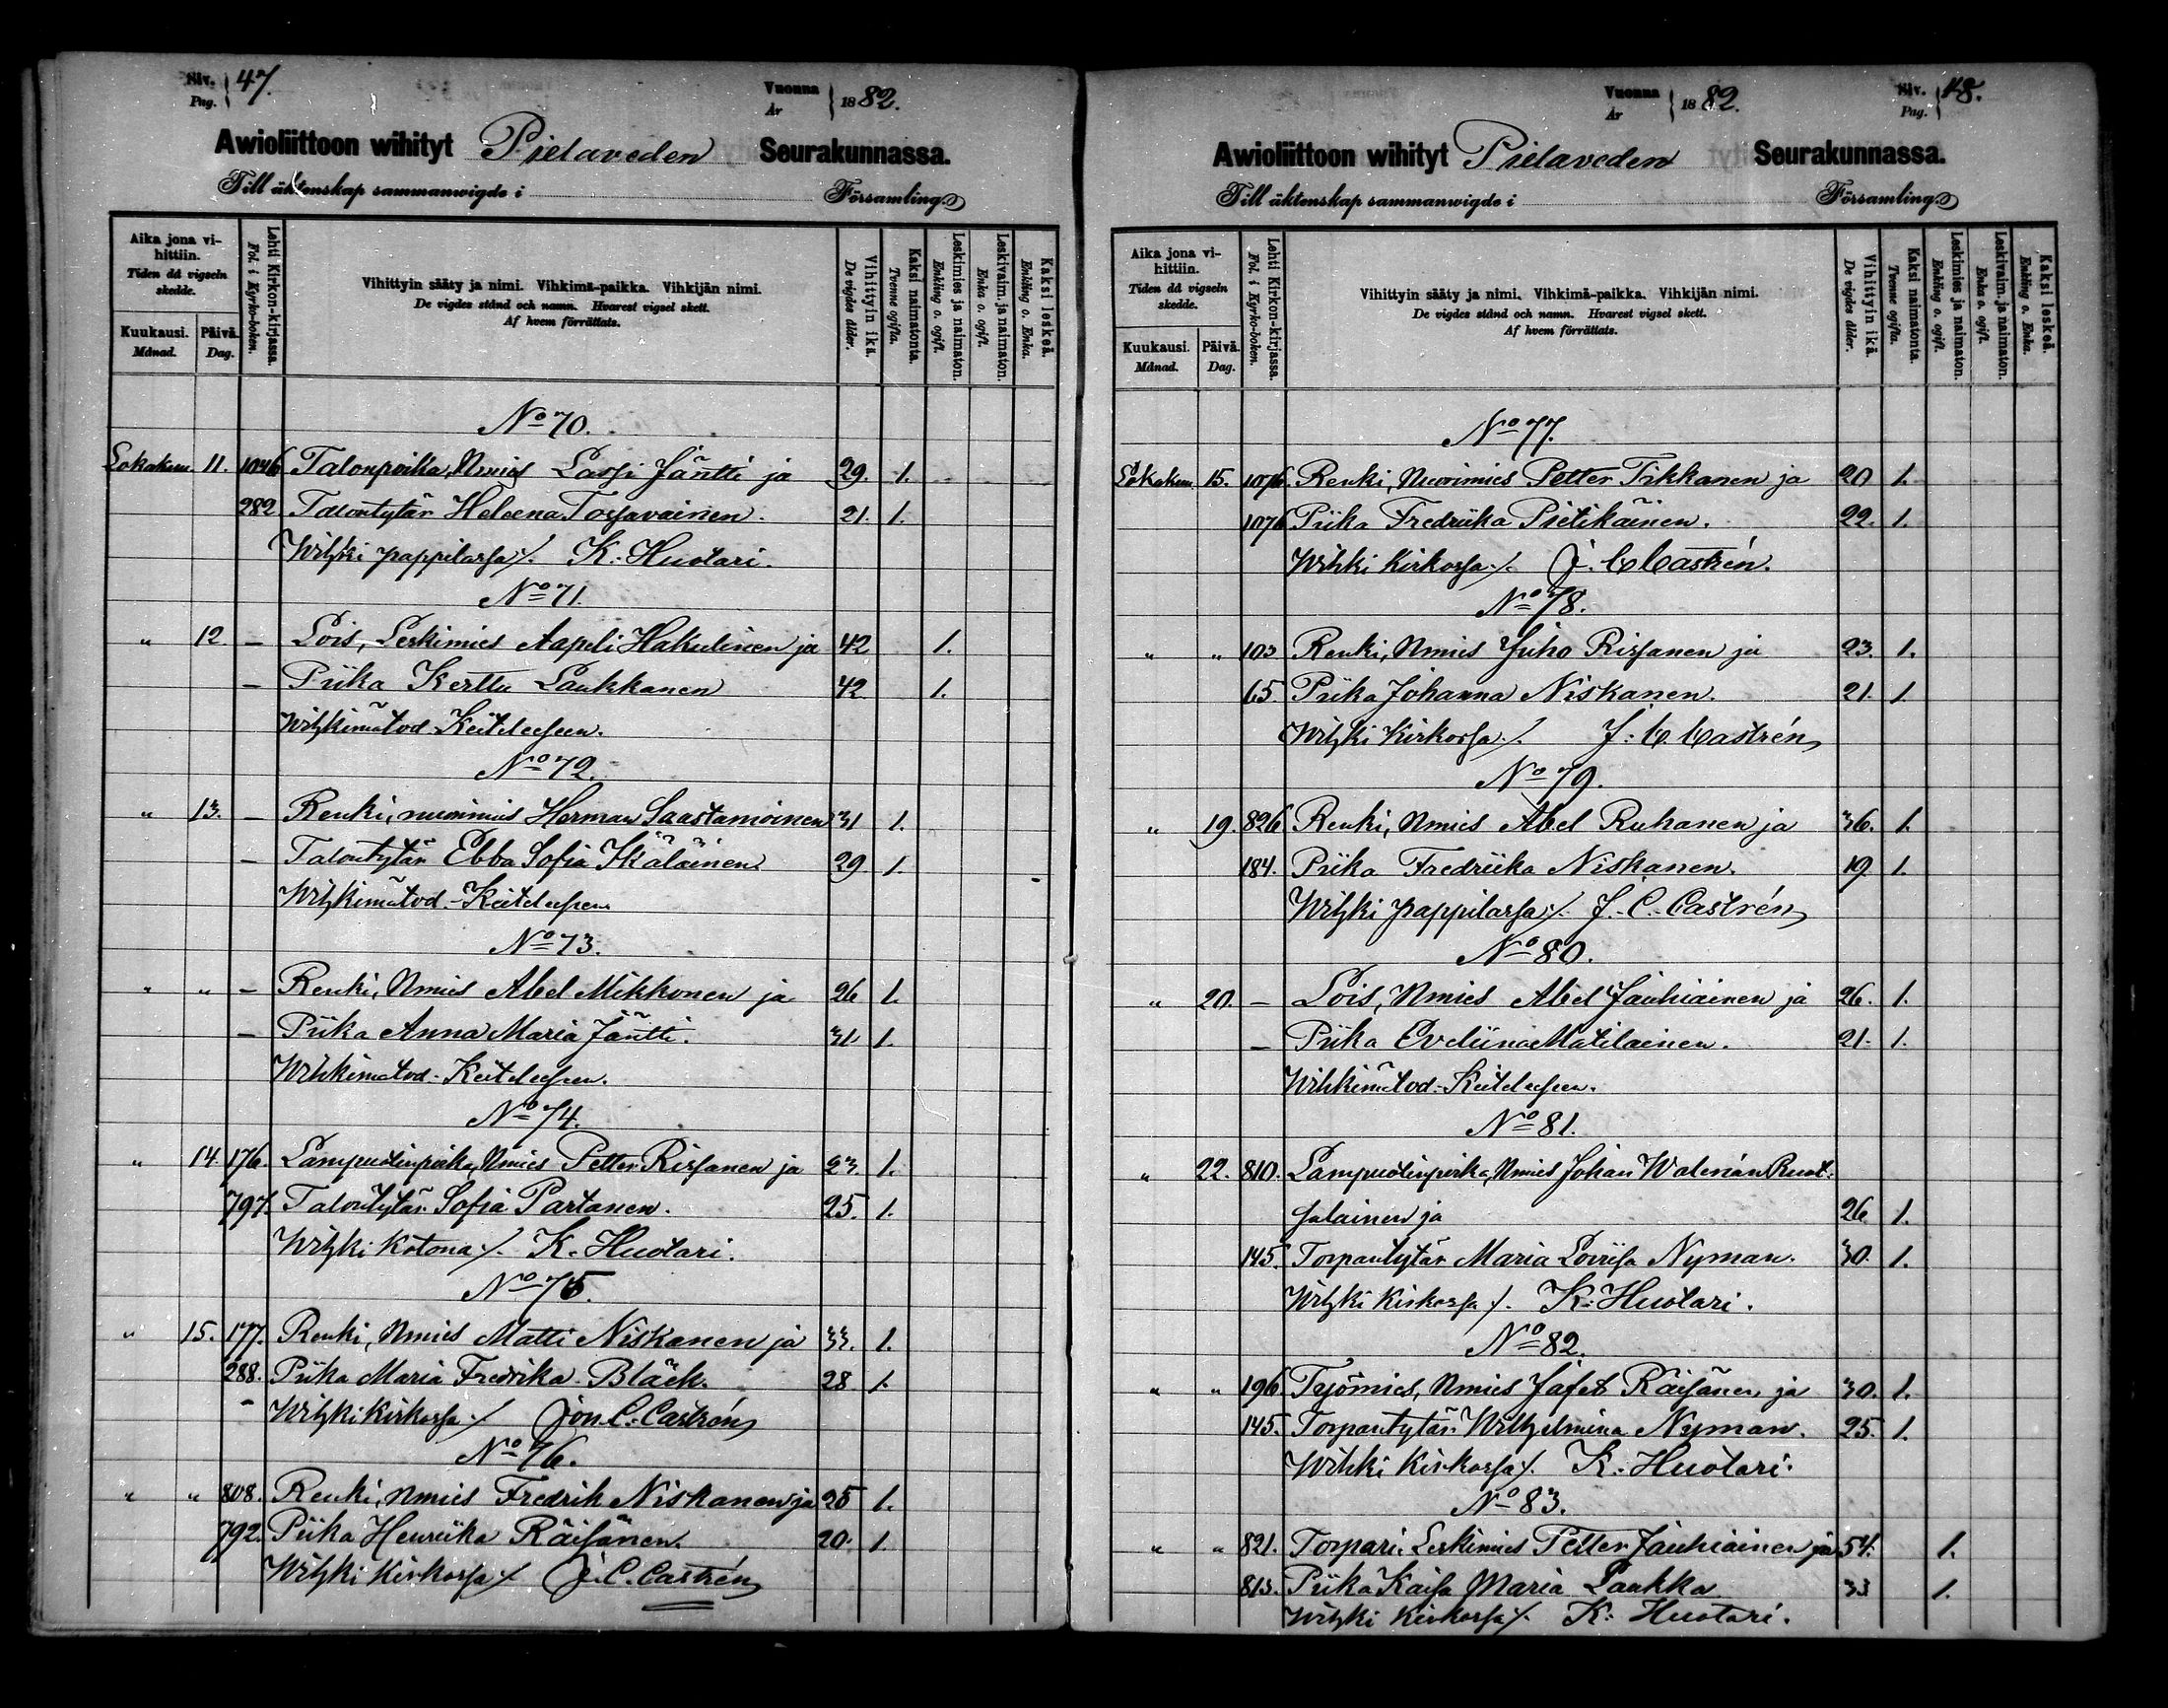 Siv. Pag. 47.
Vuonna År 1882.
Awioliittoon wihityt Pielaveden Seurakunnassa.
Till äktenskap sammanwigde i Församling.
Aika jona vihittiin.
Tiden då vigseln skedde.
Kuukausi. Månad.
Päivä. Dag.
Lehti Kirkon-kirjassa. Fol. i Kyrko-boken.
Vihittyin sääty ja nimi. Vihkimä-paikka. Vihkijän nimi.
De vigdes stånd och namn. Hvarest vigsel skett.
Af hvem förrättats.
Vihittyin ikä. De vigdes ålder.
Kaksi naimatonta. Tvenne ogifta.
Leskimies ja naimaton. Enkling o. ogift.
Leskivaim. ja naimaton. Enka o. ogift.
Kaksi leskeä. Enkling o. Enka.
No 70.
Lokakuu 11. 1046 Talonpoika, Nmies Lassi Jäntti ja 29. 1.
282 Talontytär Heleena Tossavainen. 21. 1.
Wihki pappilassa ⁒ K. Huotari.
No 71.
" 12. – Lois, Leskimies Aapeli Hakulinen ja 42 1.
– Piika Kerttu Laukkanen 42 1.
Wihkimätod. Keiteleesen.
No 72.
" 13. – Renki, nuorimies Herman Saastamoinen 31 1.
– Talontytär Ebba Sofia Ikäläinen 29 1.
Wihkimätod. Keiteleesen
No 73.
" " – Renki, Nmies Abel Mikkonen ja 26 1.
– Piika Anna Maria Jäntti. 31 1.
Wihkimätod. Keiteleesen.
No 74.
" 14. 176. Lampuotinpoika, Nmies Petter Rissanen ja 23. 1.
797. Talontytär Sofia Partanen. 25. 1.
Wihki kotona ⁒ K. Huotari.
No 75.
" 15. 177. Renki, Nmies Matti Niskanen ja 33. 1.
288. Piika Maria Fredrika Bläck. 28 1.
– Wihki Kirkossa ⁒ Joh. C. Castrén
No 76.
" " 808. Renki, Nmies Fredrik Niskanen ja 25 1.
792. Piika Henriika Räisänen. 20. 1.
Wihki Kirkossa ⁒ J. C. Castrén
Vuonna År 1882.
Siv. Pag. 48.
Awioliittoon wihityt Pielaveden Seurakunnassa.
Till äktenskap sammanwigde i Församling.
Aika jona vihittiin.
Tiden då vigseln skedde.
Kuukausi. Månad.
Päivä. Dag.
Lehti Kirkon-kirjassa. Fol. i Kyrko-boken.
Vihittyin sääty ja nimi. Vihkimä-paikka. Vihkijän nimi.
De vigdes stånd och namn. Hvarest vigsel skett.
Af hvem förrättats.
Vihittyin ikä. De vigdes ålder.
Kaksi naimatonta. Tvenne ogifta.
Leskimies ja naimaton. Enkling o. ogift.
Leskivaim. ja naimaton. Enka o. ogift.
Kaksi leskeä. Enkling o. Enka.
No 77.
Lokakuu 15. 1076. Renki, Nuorimies Petter Tikkanen ja 20 1.
1076 Piika Fredriika Pietikäinen. 22. 1.
Wihki Kirkossa ⁒ J. C Castrén.
No 78.
" " 103 Renki, Nmies Juho Rissanen ja 23. 1.
65. Piika Johanna Niskanen. 21. 1.
Wihki Kirkossa ⁒ J. C Castrén
No 79.
" 19. 826 Renki, Nmies Abel Ruhanen ja 36. 1.
184. Piika Fredriika Niskanen. 19 1.
Wihki pappilassa ⁒ J. C. Castrén
No 80.
" 20. – Lois, Nmies Abel Jauhiainen ja 26. 1.
– Piika Eveliina Matilainen. 21. 1.
Wihkimätod. Keiteleesen.
No 81.
" 22. 810. Lampuotinpoika, Nmies Johan Walerian Ruot-
salainen ja 26 1.
145. Torpantytär Maria Loviisa Nyman. 30. 1.
Wihki Kirkossa ⁒ K. Huotari.
No 82.
" " 196. Työmies, Nmies Jafet Räisänen ja 30. 1.
145. Torpantytär Wilhelmina Nyman. 25. 1.
Wihki Kirkossa ⁒ K. Huotari.
No 83.
" " 821. Torpari, Leskimies Petter Jauhiainen ja 54. 1.
813. Piika Kaisa Maria Laukka 33 1.
Wihki Kirkossa ⁒ K. Huotari.